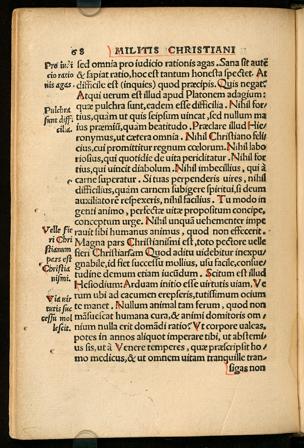 68 MILITIS CHRISTIANI
Pro iudi
cio ratio
nis agas.
sed omnia pro iudicio rationis agas. Sana sit autē
& sapiat ratio, hoc est tantum honesta spectet. At
difficile est (inquies) quod præcipis. Quis negat?
Atqui uerum est illud apud Platonem adagium:
Pulchra
sunt diffi
cilia.
quæ pulchra sunt, eadem esse difficilia. Nihil for-
tius, quam ut quis seipsum uincat, sed nullum ma
ius præmiū, quam beatitudo. Præclare illud Hie
ronymus, ut cætera omnia. Nihil Christiano felici
cius, cui promittitur regnum cœlorum. Nihil labo
riosius, qui quotidie de uita periditatur. Nihil for
tius, qui uincit diabolum. Nihil imbecillius, qui à
carne superatur. Si tuas perpenderis uires, nihil
difficilius, quàm carnem subigere spiritui, si deum
auxiliatorē respexeris, nihil facilius. Tu modo in
genti animo, perfectæ uitæ propositum concipe,
conceptum urge. Nihil unquā uehementer impe
rauit sibi humanus animus, quod non effecerit.
Velle fie
ri Chri
stianum
pars est
Christia
nismi.
Magna pars Christianismi est, toto pectore uelle
fieri Christianum Quod aditu uidebitur inexpu
gnabile, id fiet successu mollius, usu facile, consue
tudine demum etiam iucūdum. Scitum est illud
Hesiodum: Arduam initio esse uirtutis uiam, Ve
Via uir
tutis suc
cessu mol
lescit.
rum ubi ad cacumen erepseris, tutissimum ocium
te manet. Nullum animal tam ferum, quod non
māsuescat humana cura, & animi domitoris om
nium nulla erit domādi ratio? Vt corpore ualeas,
potes in annos aliquot imperare tibi, ut abstemi
us sis, ut à Venere temperes, quæ præscripsit ho
mo medicus, & ut omnem uitam tranquille tran
sigas non